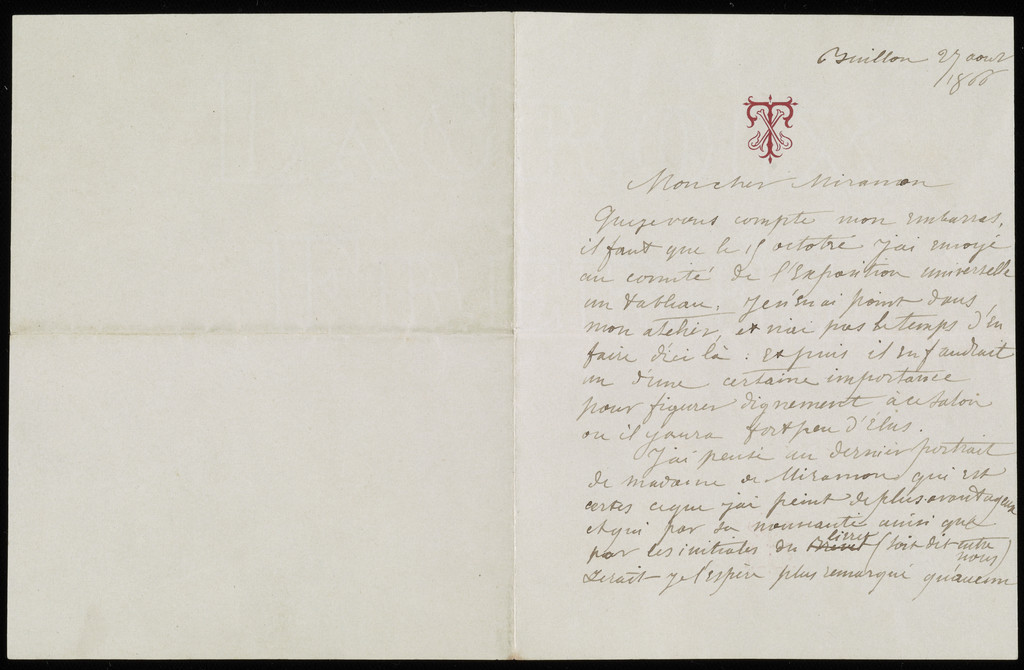 Buillon 27 aout
1866
Mon cher Miramon
Que je vous compte mon embarras,
il faut que le 15 octobre j'ai envoyé
au comité de l'Exposition universelle
un tableau. Je n'en ai point dans
mon atelier, et n'ai pas le temps d'en
faire d'ici là : et puis il en faudrait
un d'une certaine importance
pour figurer dignement à ce salon
ou il y aura fort peu d'Élus.
J'ai pensé au dernier portrait
de madame de Miramon qui est
certes ce que j'ai peint de plus avantageux
et qui par sa nouveauté ainsi que
par les initiales du livret (soit dit entre
nous)
serait je l'espère plus remarqué qu'aucun